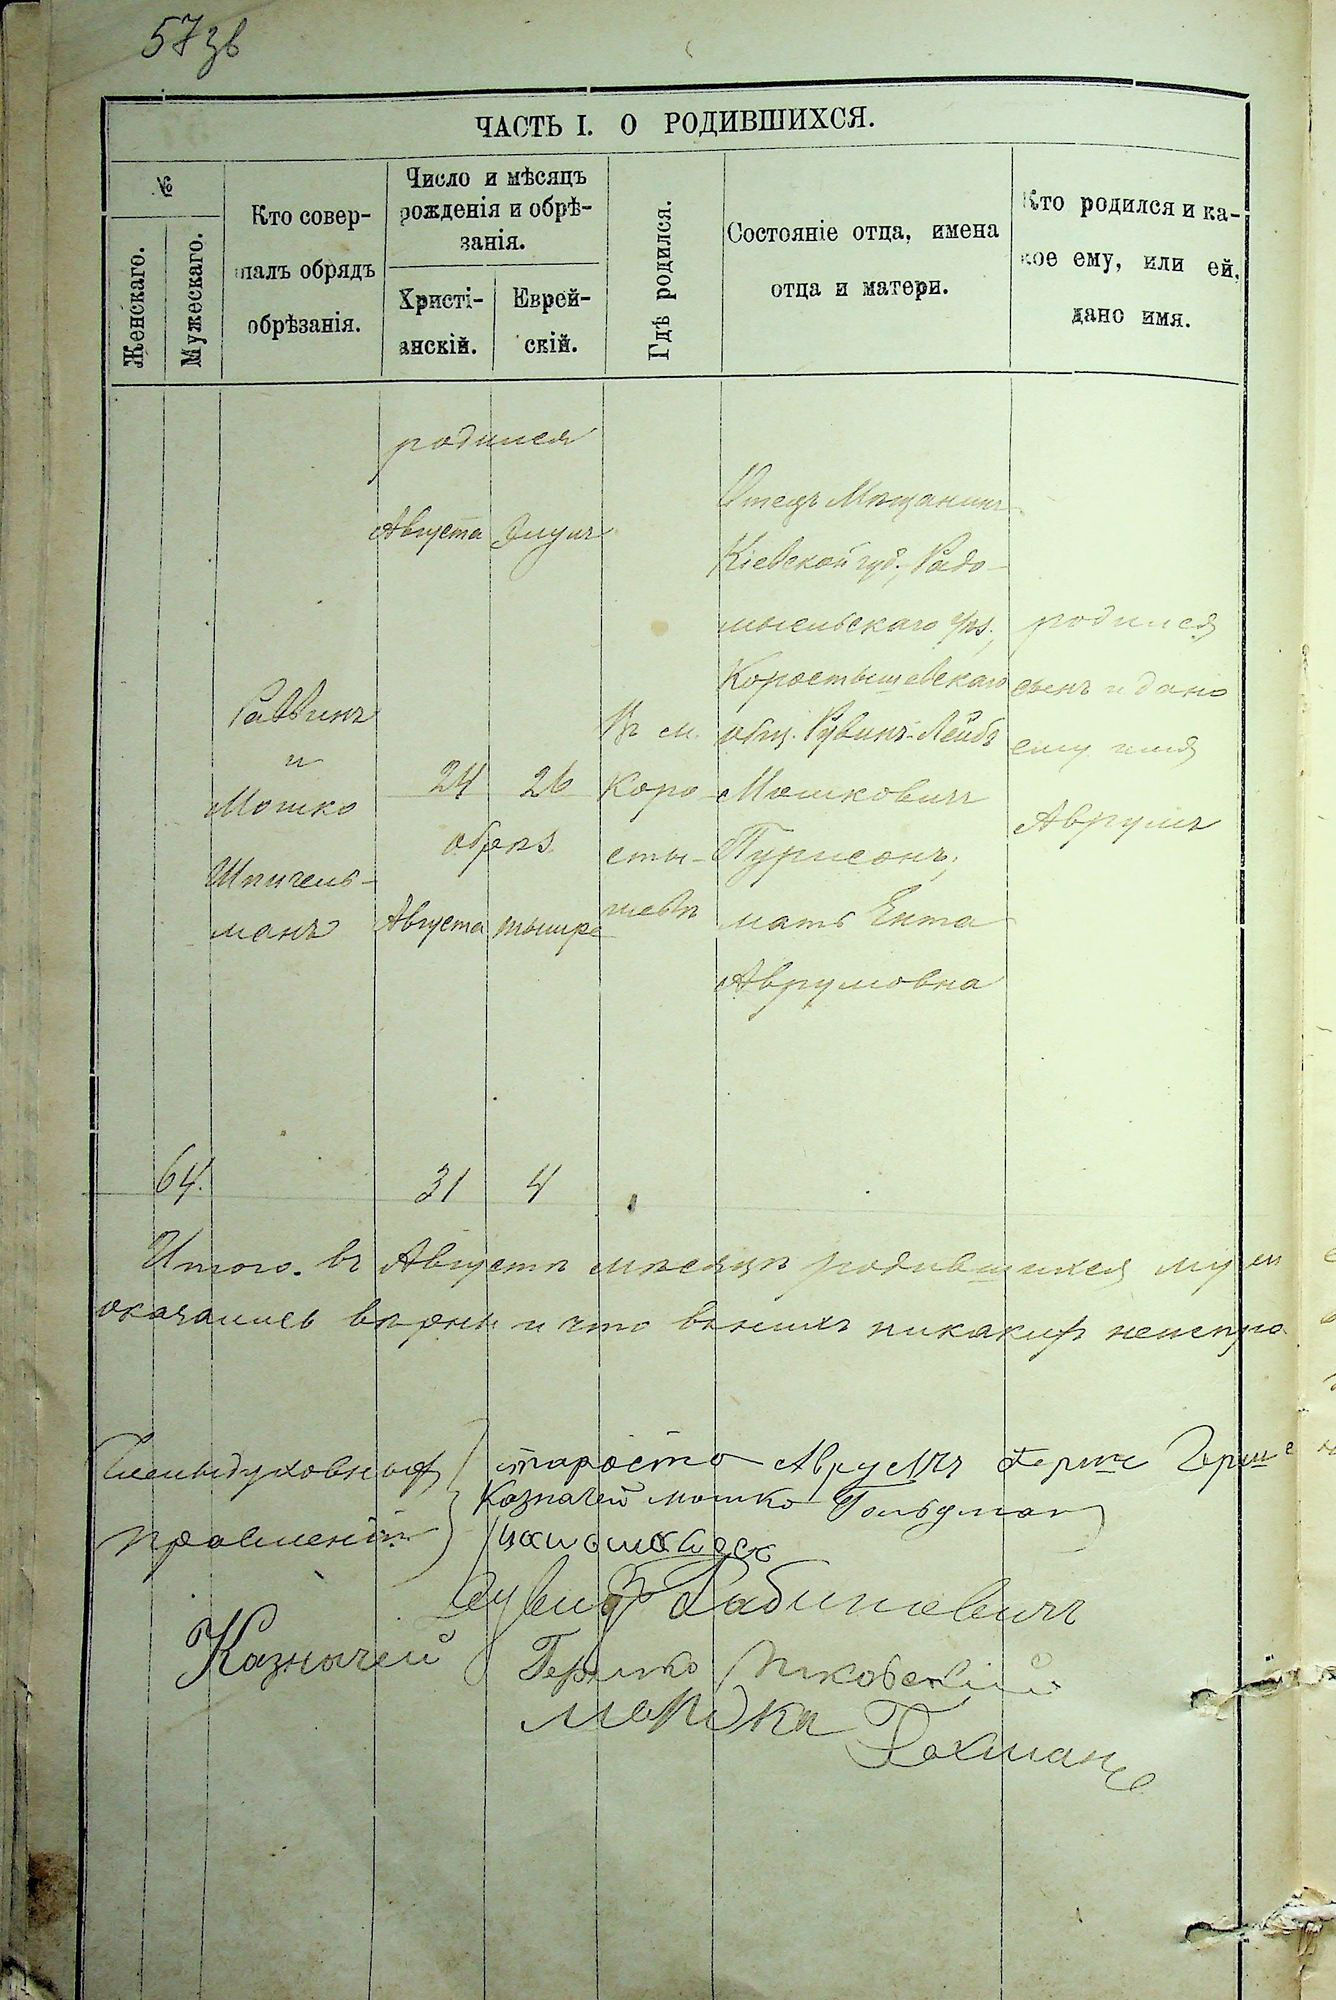 57зв
ЧАСТЬ I. О РОДИВШИХСЯ.
№
Женскаго.
Мужескаго.
Кто совер-
шалъ обрядъ
обрѣзанія.
Число и мѣсяцъ
рожденія и обрѣ-
занія.
Христі-
анскій.
Еврей-
скій.
Гдѣ родился.
Состояніе отца, имена
отца и матери.
Кто родился и ка-
кое ему, или ей,
дано имя.
64.
Раввинъ
и
Мошко
Шпигель-
манъ
родился
Августа Элулъ
24 26
обрѣз.
Августа тышре
31 4
Въ м.
Коро
сты-
шевѣ
Отецъ Мѣщанинъ
Кіевской губ., Радо-
мысльскаго уѣз.,
Коростышевскаго
общ. Рувинъ-Лейбъ
Мошковичъ
Пурисонъ,
мать Ента
Аврумовна
родился
сынъ и дано
ему имя
Аврумъ
Итого. въ Августѣ мѣсяцѣ родившихся муж
оказались вѣрны и что въ нихъ никакихъ неиспра
Члены духовныхъ
правленій
староста Аврумъ Герше
Казначей мошко Гольдман
Рабиновичъ
Казначей Гершко
Мордка Гохман